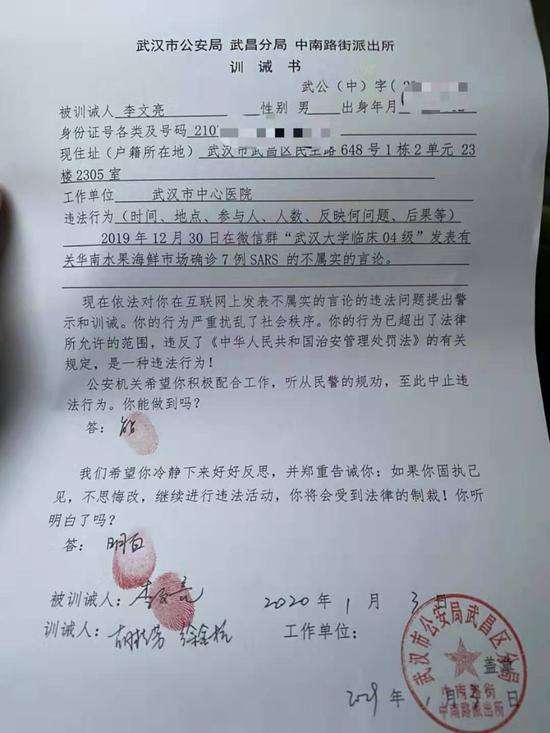 武汉市公安局 武昌分局 中南路街派出所
训 诫 书
武公（中）字（2
被训诫人 李文亮 性别 男 出身年月
身份证号各类及号码 210
现住址（户籍所在地） 武汉市武昌区民主路 648 号 1 栋 2 单元 23
楼 2305 室
工作单位 武汉市中心医院
违法行为（时间、地点、参与人、人数、反映何问题、后果等）
2019 年 12 月 30 日在微信群“武汉大学临床 04 级”发表有
关华南水果海鲜市场确诊 7 例 SARS 的不属实的言论。
现在依法对你在互联网上发表不属实的言论的违法问题提出警
示和训诫。你的行为严重扰乱了社会秩序。你的行为已超出了法律
所允许的范围，违反了《中华人民共和国治安管理处罚法》的有关
规定，是一种违法行为！
公安机关希望你积极配合工作，听从民警的规劝，至此中止违
法行为。你能做到吗？
答：能
我们希望你冷静下来好好反思，并郑重告诫你：如果你固执己
见，不思悔改，继续进行违法活动，你将会受到法律的制裁！你听
明白了吗？
答：明白
被训诫人：李文亮 2020 年 1 月 3 日
训诫人： 工作单位：
武汉市公安局武昌区分局
盖章
中南路街
中南路派出所
年 1 月 3 日